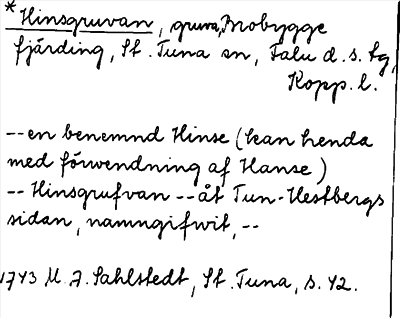 *Hinsgruvan, gruva, Brobygge
fjärding, St. Tuna sn, Falu d.s. tg,
Kopp. l.
--en benemnd Hinse (kan henda
med förwendning af Hanse)
-- Hinsgrufvan -- åt Tun-Hestbergs
sidan, namngifwit, --
1743 M. A. Sahlstedt, St. Tuna, s. 42.